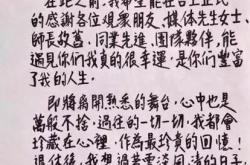 在此之前,我希望能在台上正式
的感謝各位現眾朋友、媒体先生女士、
師長故舊、同業先進、團隊夥伴,能
遇見你们我真的很幸運,是你们豐富
了我的人生。
即將離開熟悉的舞台,心中也是
萬般不捨,過往的一切一切,我都會
珍藏在心裡,作為最珍貴的回憶!
退休後,我想過著雲淡風清的日子